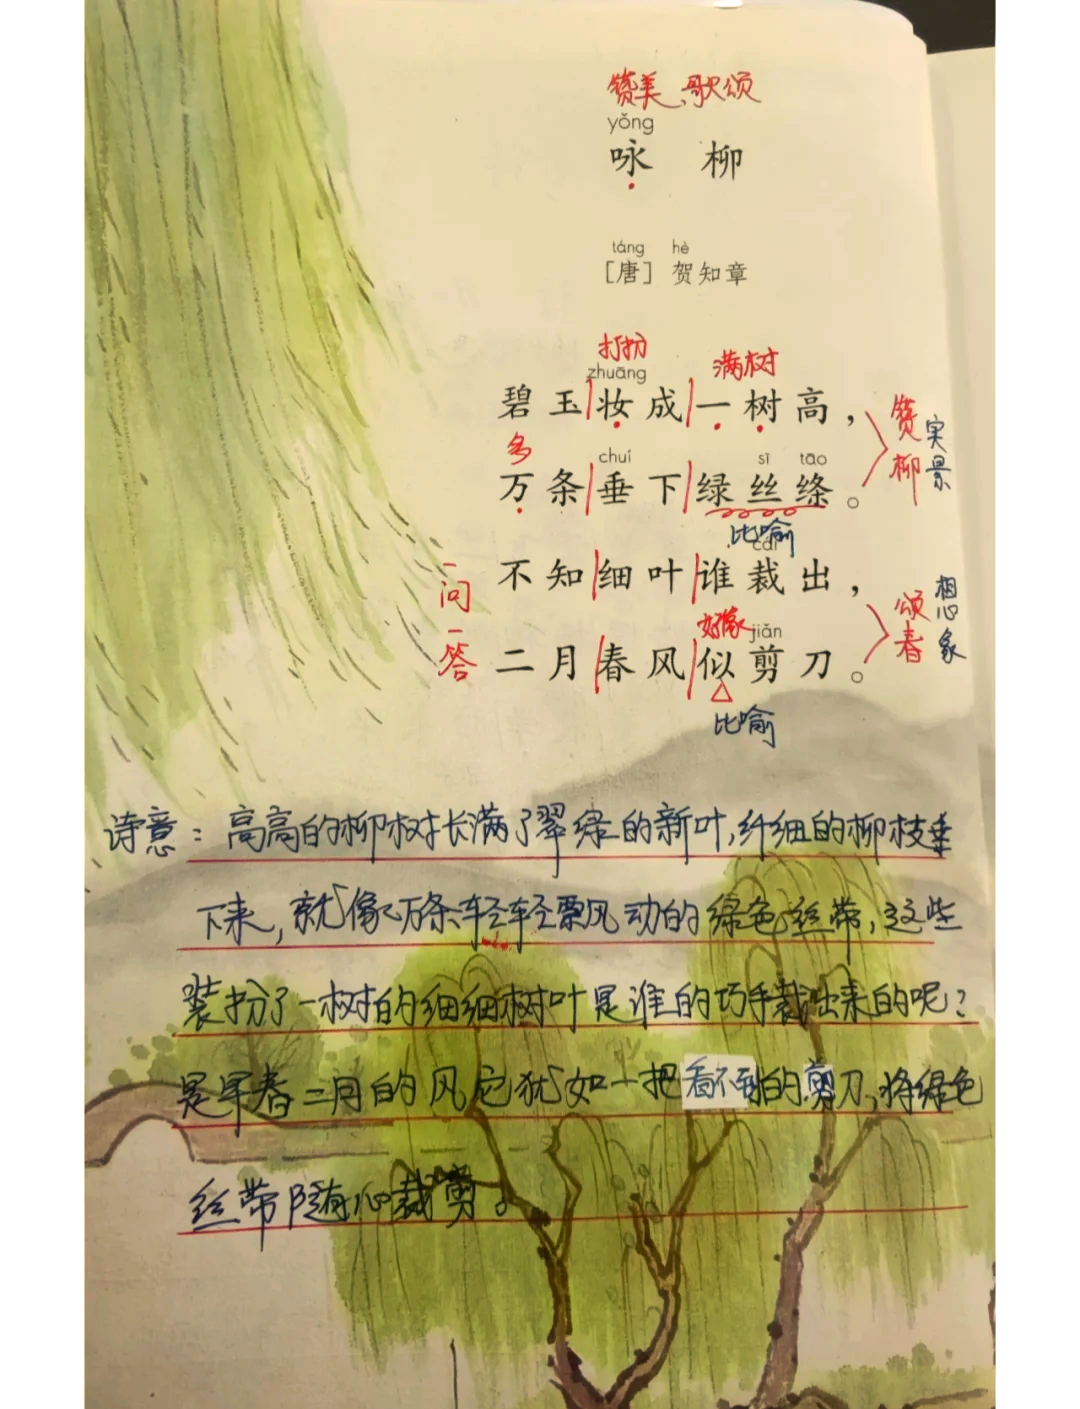 赞美、歌颂
yǒng
咏 柳
táng hè
［唐］ 贺知章
打扮 满树
zhuāng
碧玉妆成一树高，
赞柳 实景
多
chuí sī tāo
万条垂下绿丝绦。
比喻
cái
一问 不知细叶谁裁出，
颂春 想象
好像
jiǎn
一答 二月春风似剪刀。
比喻
诗意：高高的柳树长满了翠绿的新叶,纤细的柳枝垂
下来,就像万条轻轻飘动的绿色丝带,这些
装扮了一树的细细树叶是谁的巧手裁出来的呢？
是早春二月的风它犹如一把看不到的剪刀,将绿色
丝带随心裁剪。